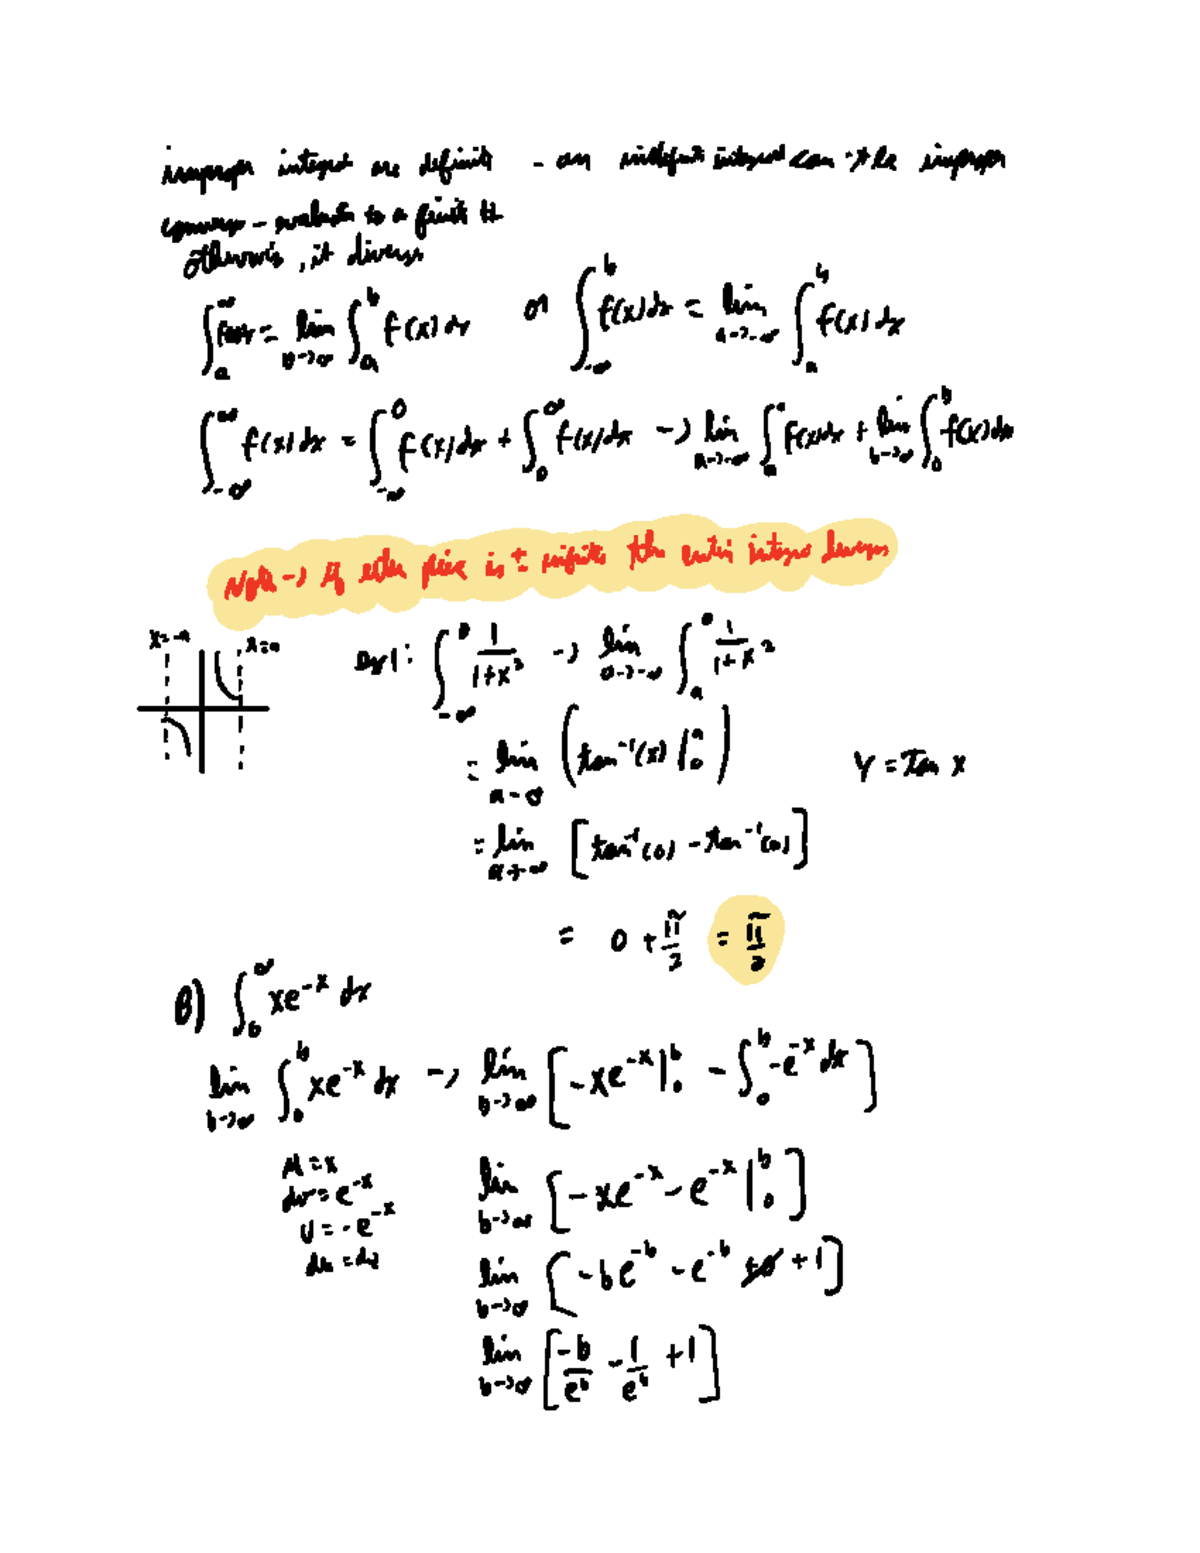 improper integral are definite - an indefinite integral can't be improper
converge - evaluates to a finite #
otherwise, it diverges
∫_a^∞ f(x)dx = lim_{b→∞} ∫_a^b f(x)dx or ∫_{-∞}^b f(x)dx = lim_{a→-∞} ∫_a^b f(x)dx
∫_{-∞}^∞ f(x)dx = ∫_{-∞}^0 f(x)dx + ∫_0^∞ f(x)dx → lim_{a→-∞} ∫_a f(x)dx + lim_{b→∞} ∫_0^b f(x)dx
Note → if either piece is ± infinite the entire integral diverges
Ex 1: ∫_{-∞}^0 1/(1+x²) → lim_{a→-∞} ∫_a^0 1/(1+x²)
= lim (tan⁻¹(x)|) Y = Tan x
= lim_{a→-∞} [tan⁻¹(0) - tan⁻¹(a)]
= 0 + π/2 = π/2
B) ∫_0^∞ xe^{-x} dx
lim_{b→∞} ∫_0^b xe^{-x} dx → lim_{b→∞} [-xe^{-x}|_0^b - ∫_0^b -e^{-x} dx]
u = x
dv = e^{-x}
v = -e^{-x}
du = dx
lim_{b→∞} [-xe^{-x} - e^{-x}|_0^b]
lim_{b→∞} [-be^{-b} - e^{-b} +0 +1]
lim_{b→∞} [-b/e^b - 1/e^b + 1]